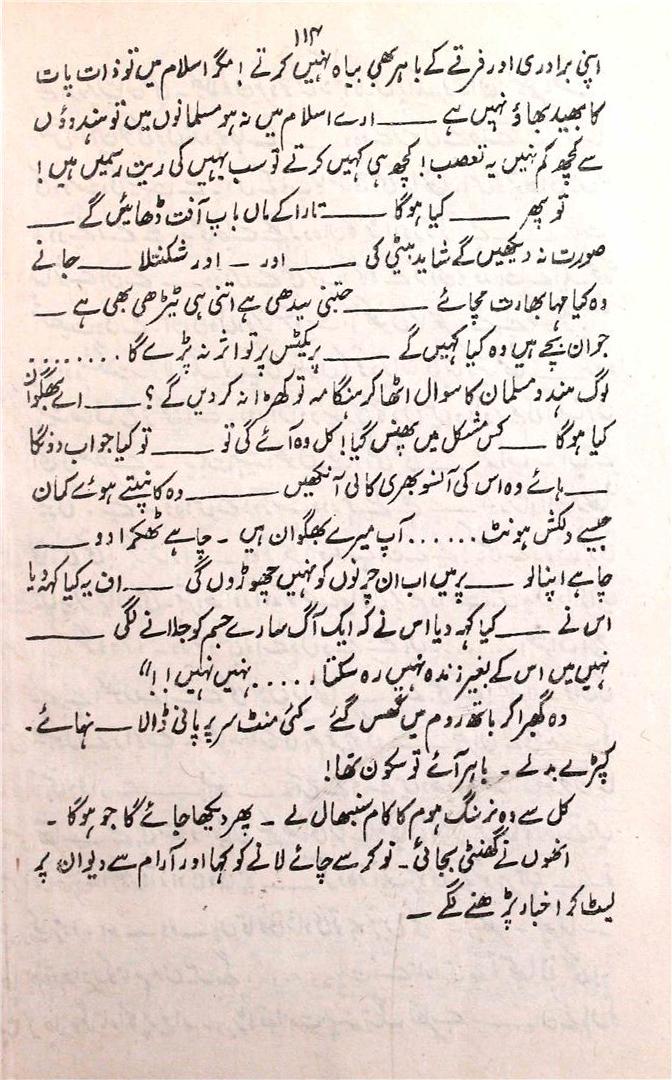 ۱۱۴
اپنی برادری اور فرقے کے باہر بھی بیاہ نہیں کرتے! مگر اسلام میں تو ذات پات
کا بھید بھاؤ نہیں ہے ــــ ارے اسلام میں نہ ہو مسلمانوں میں تو ہندوؤں
سے کچھ کم نہیں یہ تعصب! کچھ ہی کہیں کرتے تو سب یہیں کی ریت رسمیں ہیں!
تو پھر ــــ کیا ہوگا ــــ تارا کے ماں باپ آفت ڈھائیں گے ــــ
صورت نہ دیکھیں گے شاید بیٹی کی ــــ اور ۔ اور شکنتلا ــــ جانے
وہ کیا مہا بھارت مچائے ــــ جتنی سیدھی ہے اتنی ہی ٹیڑھی بھی ہے ــــ
جوان بچے ہیں وہ کیا کہیں گے ــــ پریکٹس پر تو اثر نہ پڑے گا ........
لوگ ہندو مسلمان کا سوال اٹھا کر ہنگامہ تو کھڑا نہ کر دیں گے ؟ ــــ اے بھگوان
کیا ہوگا ــــ کس مشکل میں پھنس گیا! کل وہ آئے گی تو ــــ تو کیا جواب دونگا
ــــ ہائے وہ اس کی آنسو بھری کالی آنکھیں ــــ وہ کانپتے ہوئے کمان
جیسے دلکش ہونٹ ...... آپ میرے بھگوان ہیں ۔ چاہے ٹھکرا دو ــــ
چاہے اپنا لو ــــ پر میں اب ان چرنوں کو نہیں چھوڑوں گی ــــ اف یہ کیا کہہ دیا
اس نے ــــ کیا کہہ دیا اس نے کہ ایک آگ سارے جسم کو جلانے لگی ــــ
نہیں میں اس کے بغیر زندہ نہیں رہ سکتا، .... نہیں نہیں!!"
وہ گھبرا کر باتھ روم میں گھس گئے ۔ کئی منٹ سر پر پانی ڈالا ــــ نہائے ۔
کپڑے بدلے ۔ باہر آئے تو سکون تھا!
کل سے وہ نرسنگ ہوم کا کام سنبھال لے ۔ پھر دیکھا جائے گا جو ہوگا ۔
انھوں نے گھنٹی بجائی ۔ نوکر سے چائے لانے کو کہا اور آرام سے دیوان پر
لیٹ کر اخبار پڑھنے لگے ۔